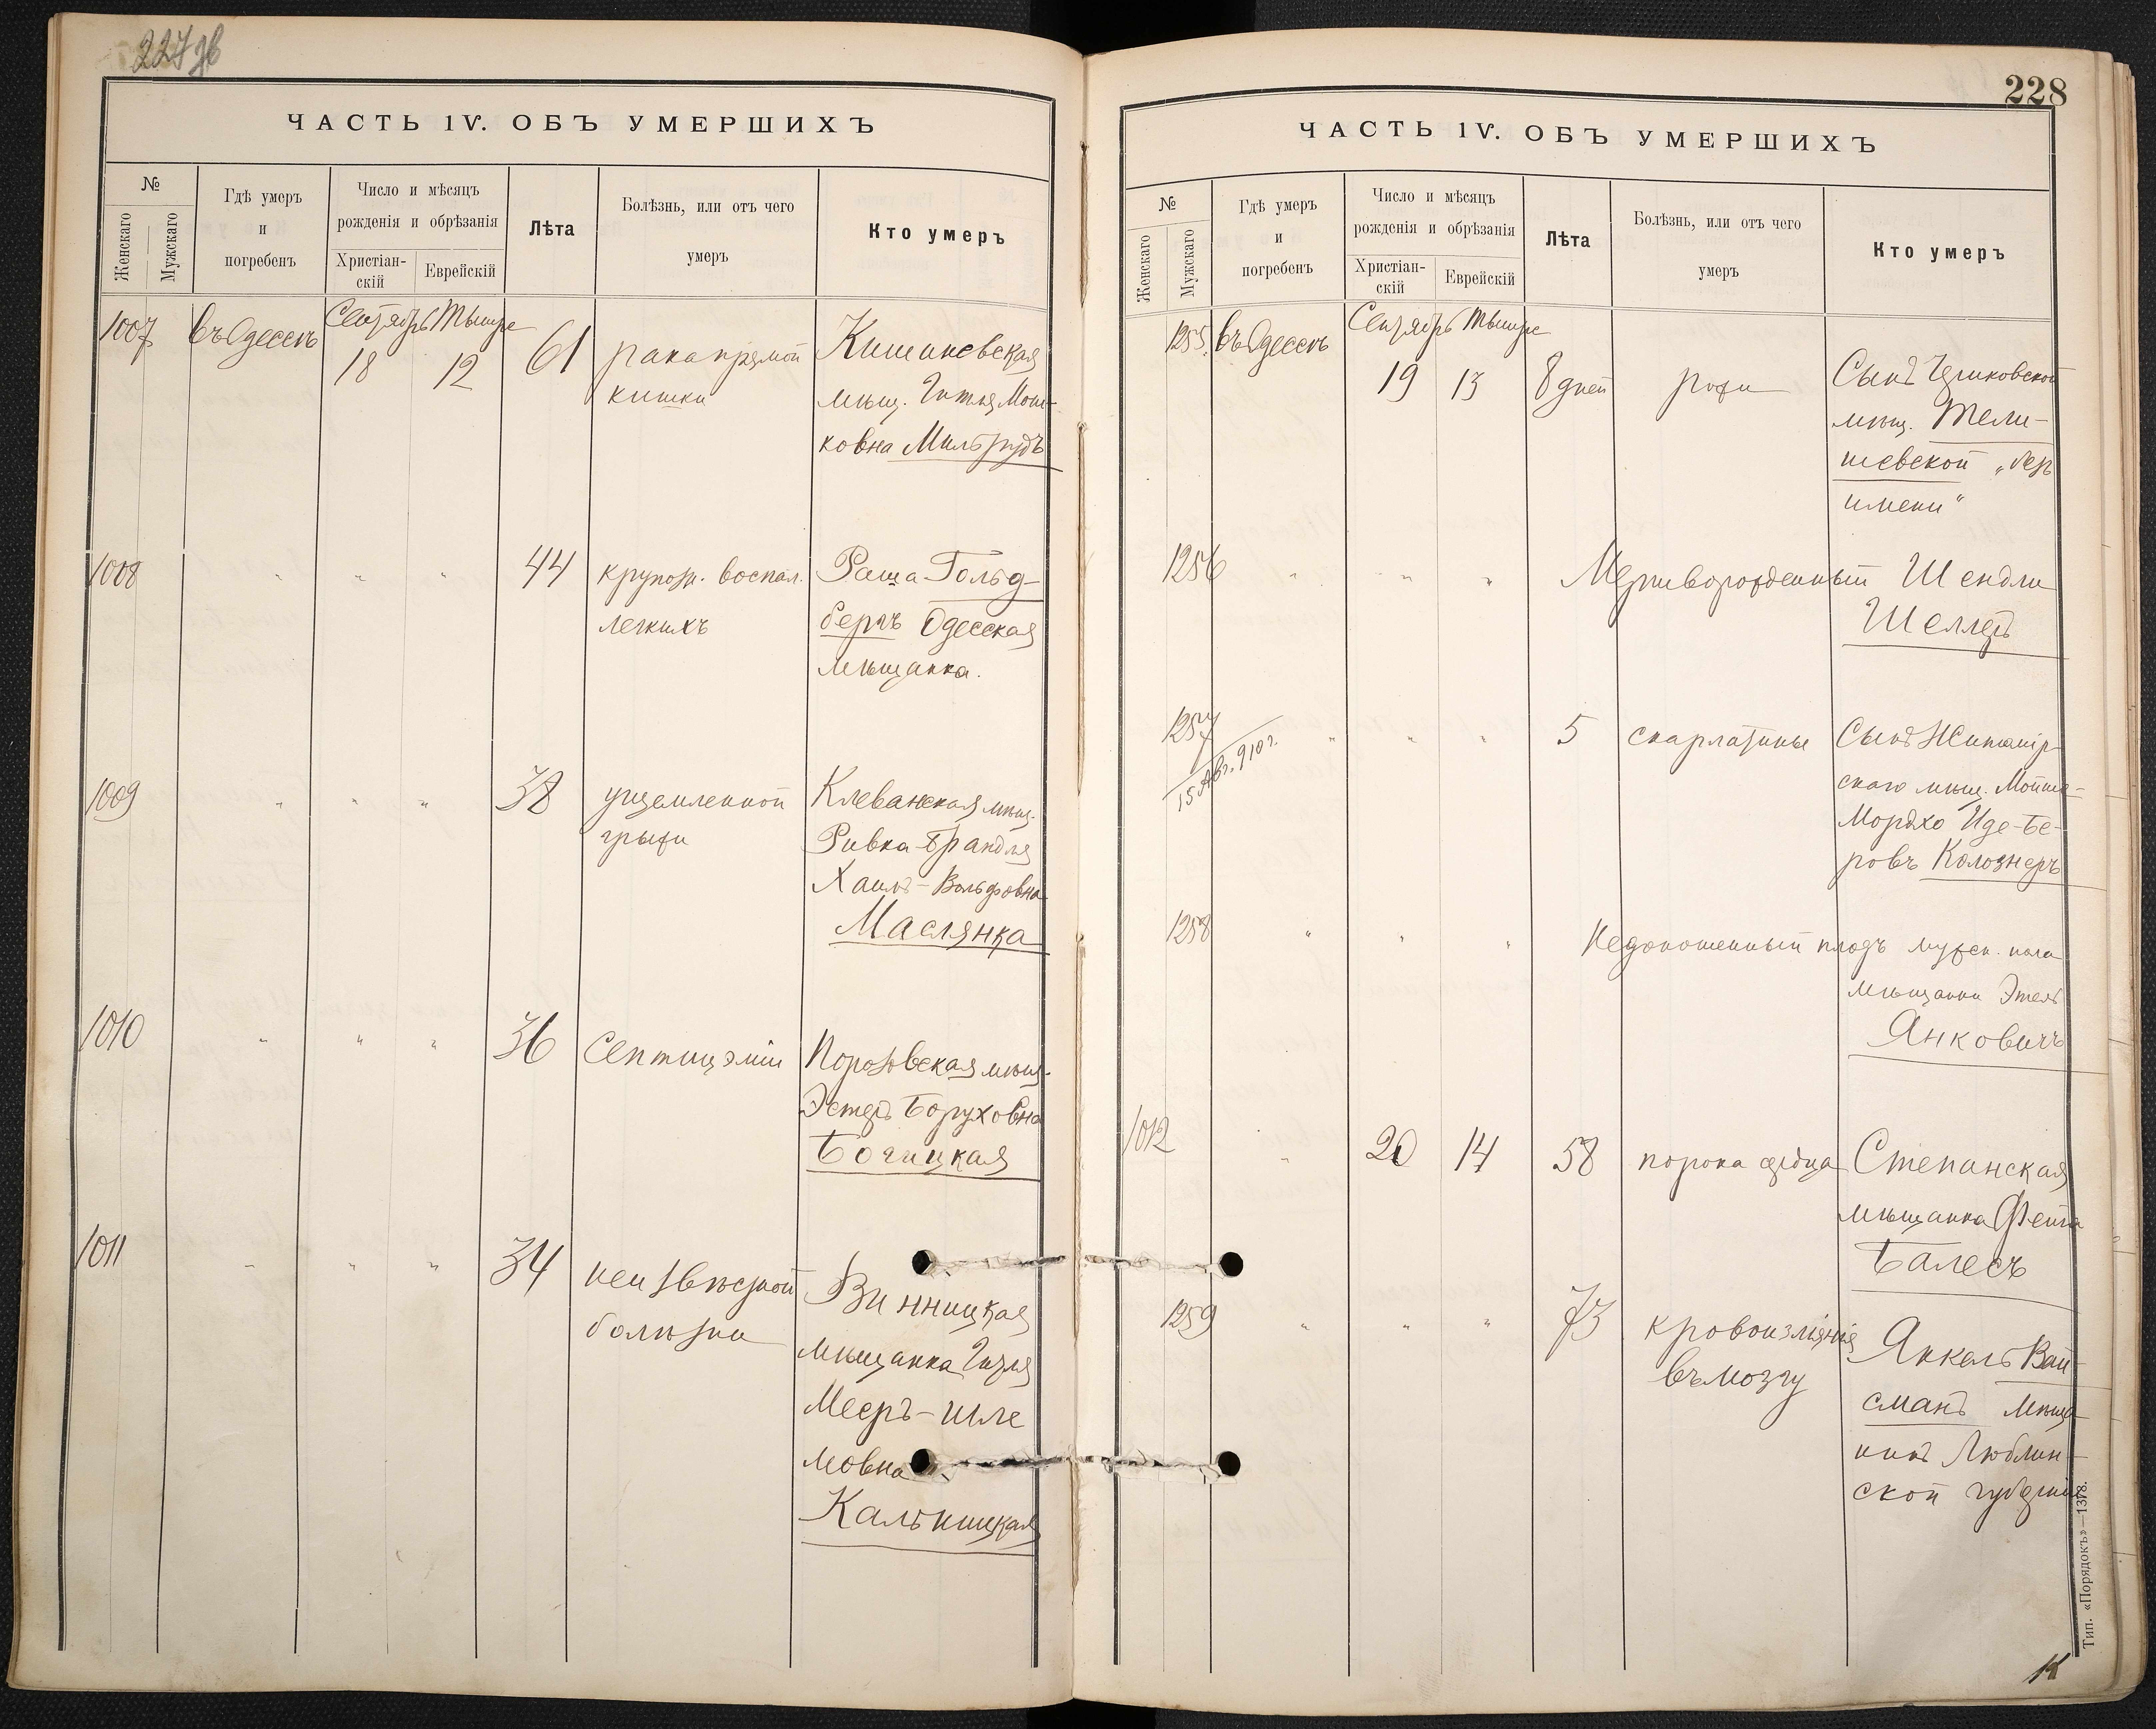 227 об
ЧАСТЬ IV. ОБЪ УМЕРШИХЪ
№
Женскаго
Мужскаго
Гдѣ умеръ
и
погребенъ
Число и мѣсяцъ
рожденія и обрѣзанія
Христіан-
скій
Еврейскій
Лѣта
Болѣзнь, или отъ чего
умеръ
Кто умеръ
1007 въ Одессѣ Сентябрь Тышре
18 12 61 рака прямой Кишиневская
кишки мѣщ. Гитля Мош-
ковна Мильрудъ
1008 " " " 44 крупозн. воспал. Раша Гольд-
легкихъ бергъ Одесская
мѣщанка.
1009 " " " 38 ущемленной Клеванская мѣщ.
грыжи Ривка-Брандля
Хаимъ-Вольфовна
Маслянка
1010 " " " 36 Септицэміи Порозовская мѣщ.
Эстеръ Боруховна
Богицкая
1011 " " " 34 неизвѣстной Винницкая
болѣзни мѣщанка Гизя
Мееръ-Шле
мовна
Кальницкая
228
ЧАСТЬ IV. ОБЪ УМЕРШИХЪ
№
Женскаго
Мужскаго
Гдѣ умеръ
и
погребенъ
Число и мѣсяцъ
рожденія и обрѣзанія
Христіан-
скій
Еврейскій
Лѣта
Болѣзнь, или отъ чего
умеръ
Кто умеръ
1255. въ Одессѣ Сентябрь Тышре
19 13 8 дней рожи Сынъ
мѣщ. Тели-
шевской „безъ
имени“
1256 " " " Мертворожденный Шендли
Шеллеръ
1257 " " " 5 скарлатины Сынъ Житомір-
15 Авг. 910 г.
скаго мѣщ. Мойше-
Мордко Иде-Бе-
ровъ Колознеръ
1258 " " " Недоношенный плодъ мужск. пола
мѣщанки Этель
Янковичъ
1012 " 20 14 58 порока сердца Степанская
мѣщанка Фейга
Балесъ
1259 " " " 73 кровоизліянія Янкель Вай-
въ мозгу сманъ мѣща-
нинъ Люблин-
ской губерніи
Тип. «Порядокъ»—1378.